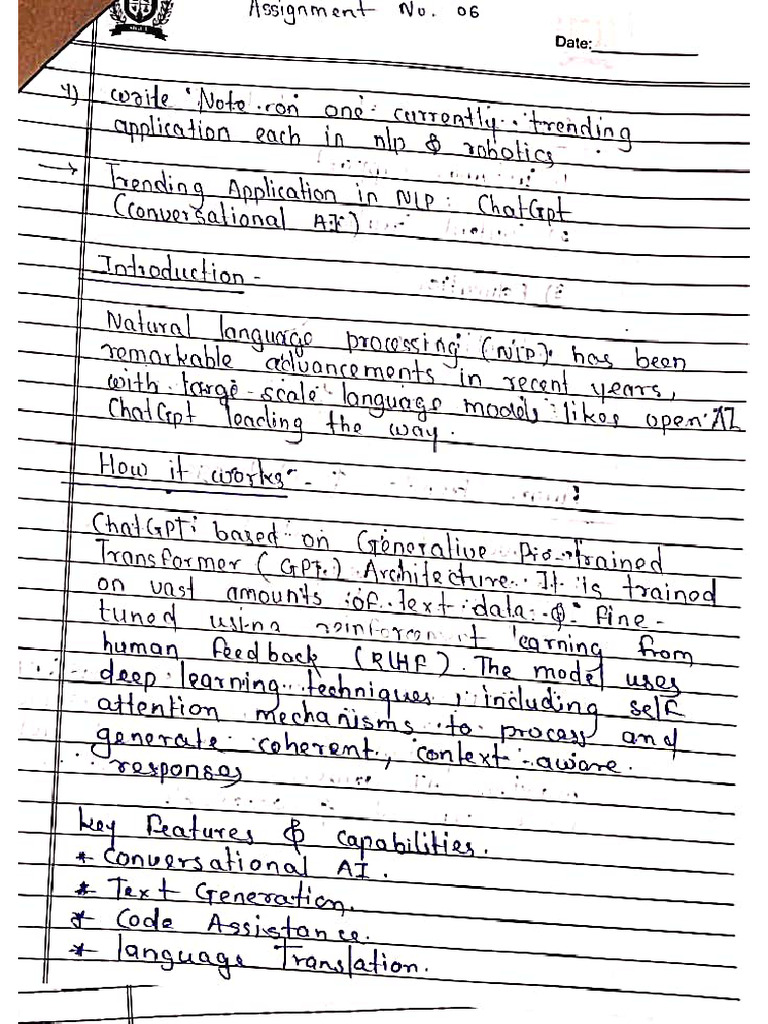 Assignment No. 06
Date:
1) Write Note on one currently trending
application each in nlp & robotics
→ Trending Application in NLP: ChatGpt
(Conversational AI)
Introduction -
Natural language processing (NLP) has been
remarkable advancements in recent years,
with large-scale language models likes openAI
ChatGpt leading the way.
How it works -
ChatGPT: based on Generative Pre-Trained
Transformer (GPT) Architecture. It is trained
on vast amounts of text data & fine-
tuned using reinforcement learning from
human feedback (RLHF). The model uses
deep learning techniques, including self
attention mechanisms to process and
generate coherent, context-aware.
responses
key Features & capabilities.
* Conversational AI.
* Text Generation.
* Code Assistance.
* language Translation.